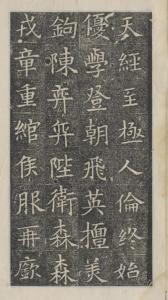 天經至極人倫終始
優學登朝飛英擅美
鉤陳弈弈陛衛森森
戎章重綰侯服再廞